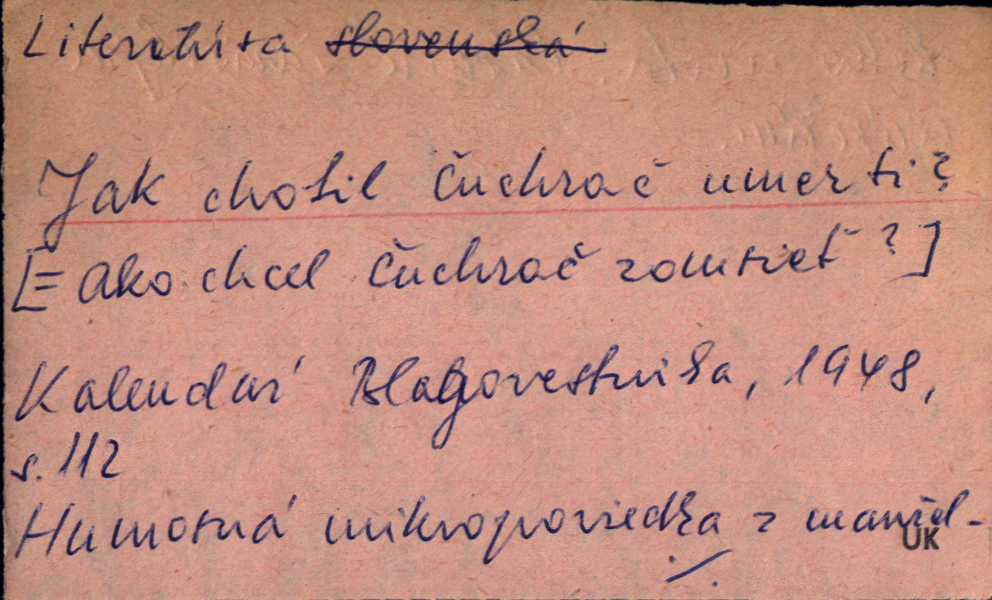 Literatúra slovenská
Jak chotil Čuchrač umerti?
[= Ako chcel Čuchrač zomrieť?]
Kalendar Blagovestnika, 1948,
s. 112
Humorná mikropoviedka z manžel-
UK
./.